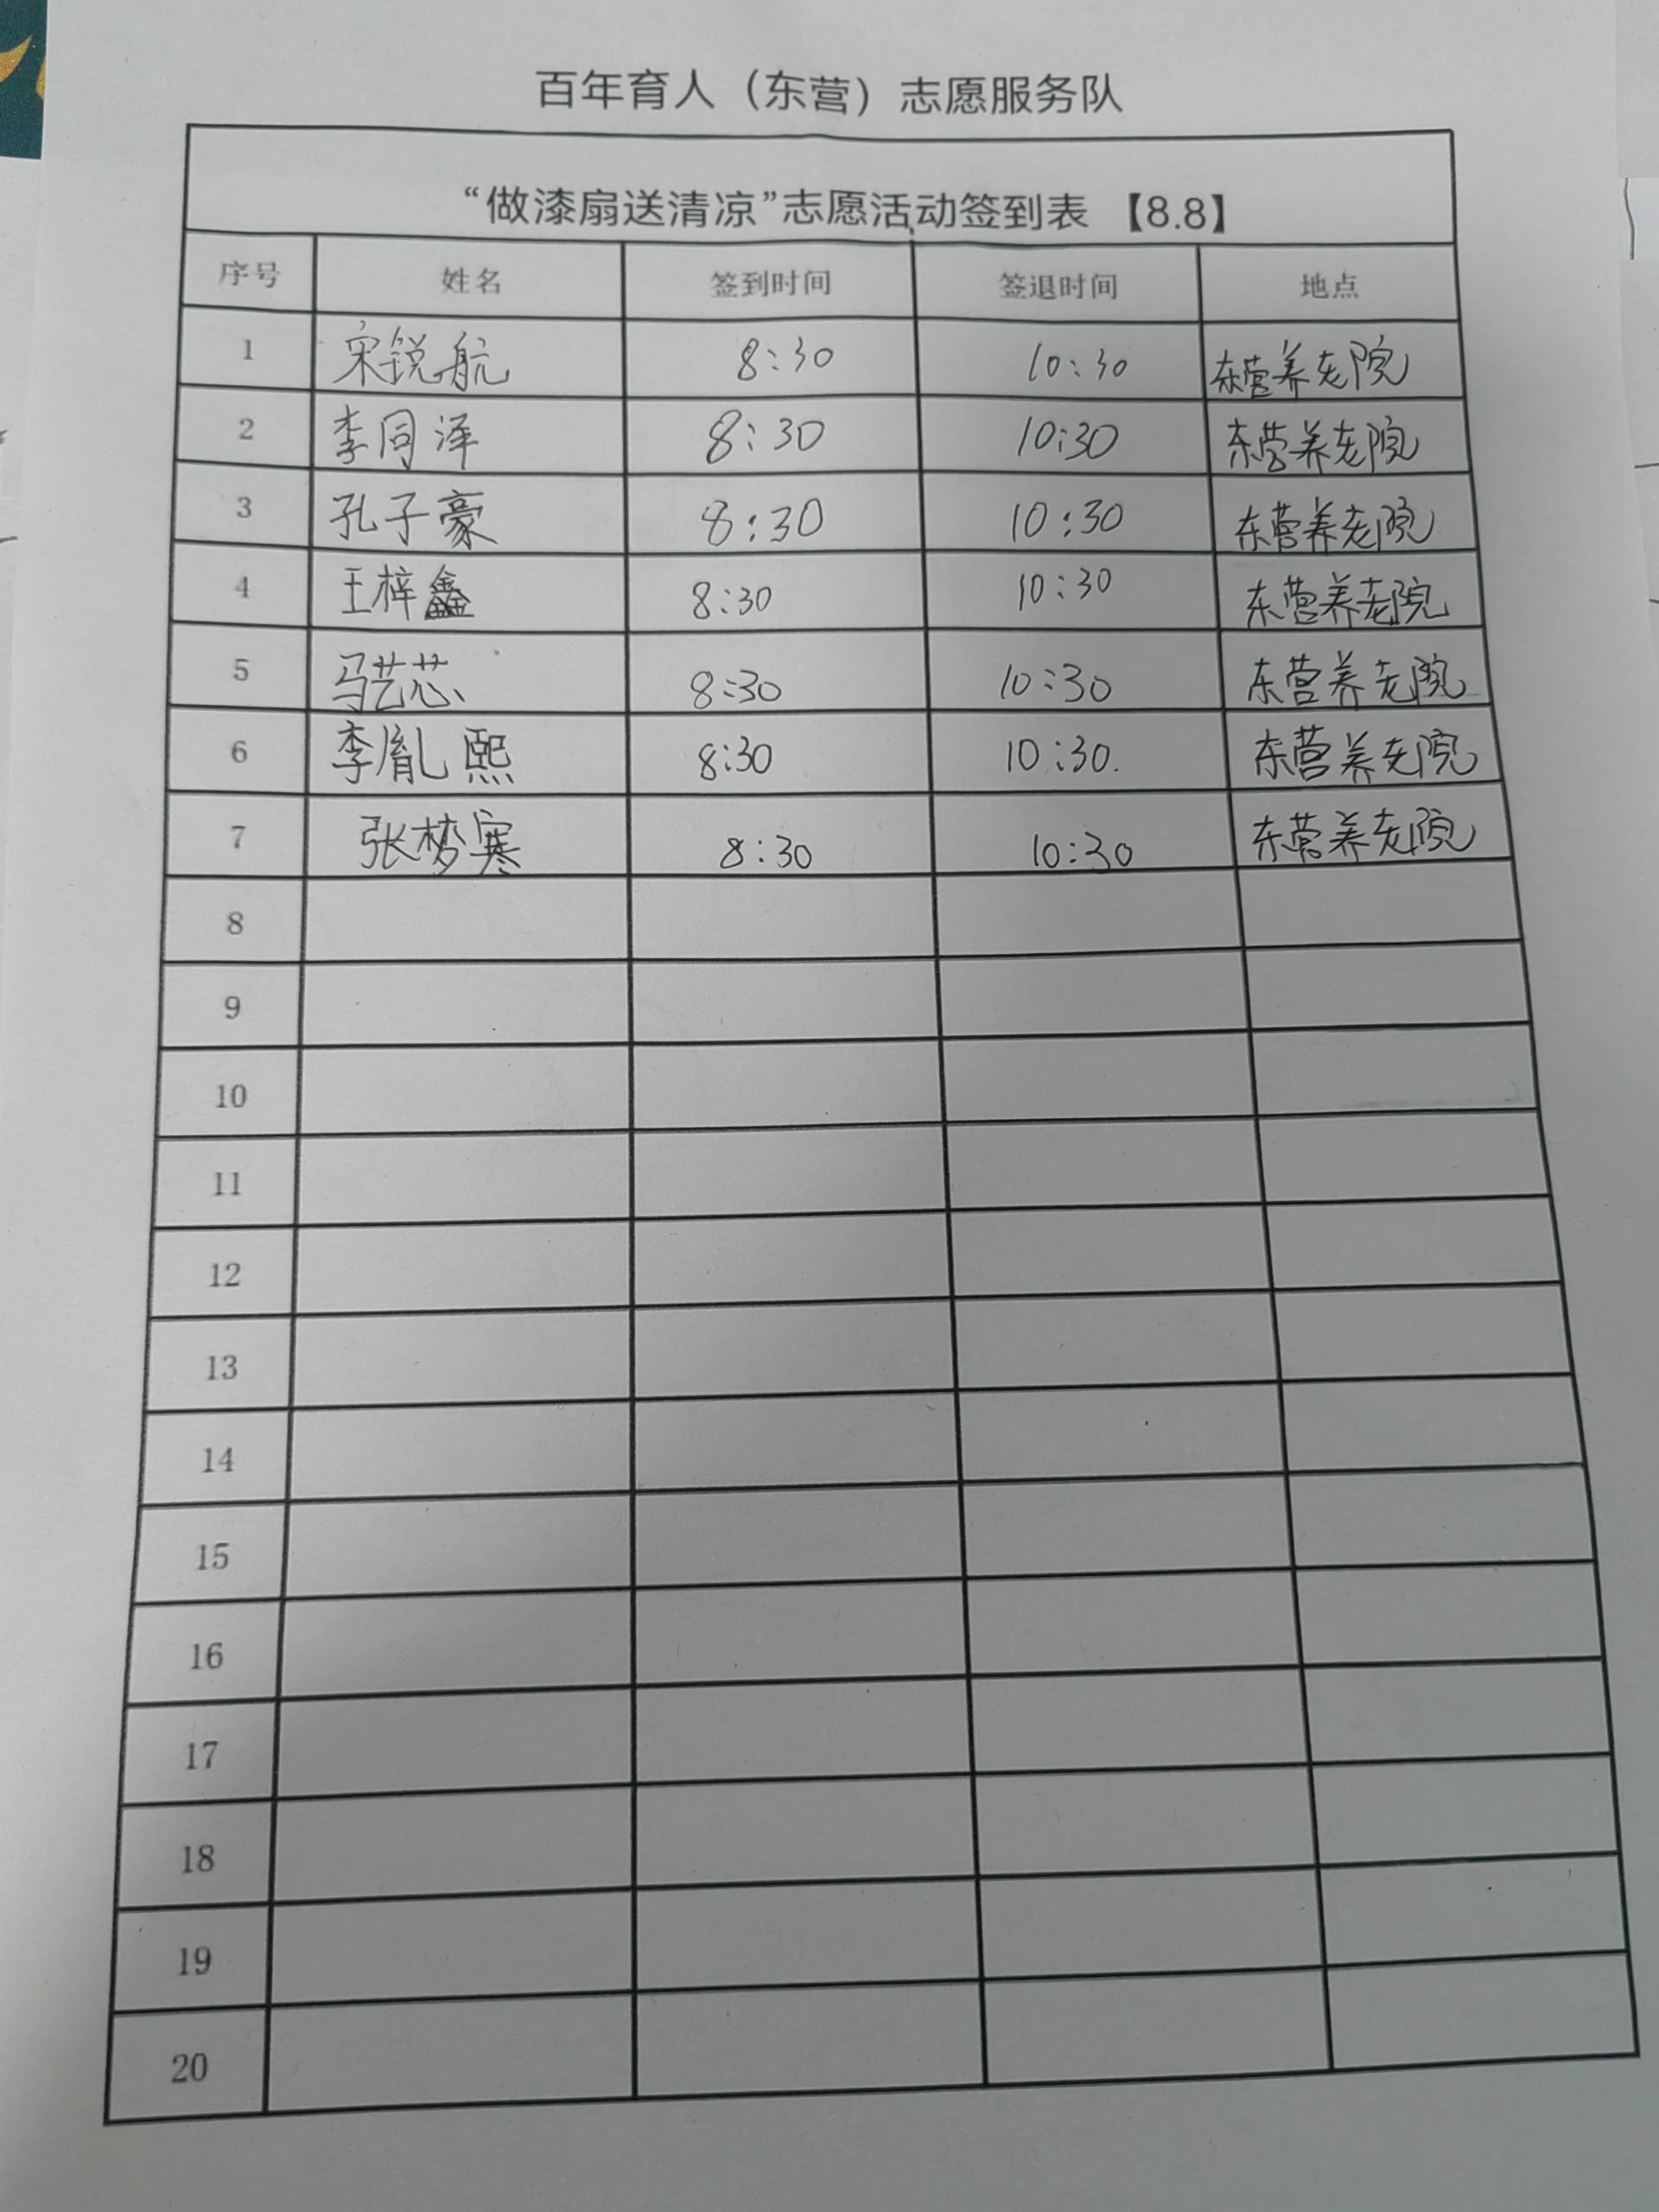 百年育人（东营）志愿服务队
“做漆扇送清凉”志愿活动签到表 【8.8】
序号 姓名 签到时间 签退时间 地点
1 宋锐航 8:30 10:30 东营养老院
2 李同泽 8:30 10:30 东营养老院
3 孔子豪 8:30 10:30 东营养老院
4 王梓鑫 8:30 10:30 东营养老院
5 马艺芯 8:30 10:30 东营养老院
6 李胤熙 8:30 10:30. 东营养老院
7 张梦寒 8:30 10:30 东营养老院
8
9
10
11
12
13
14
15
16
17
18
19
20